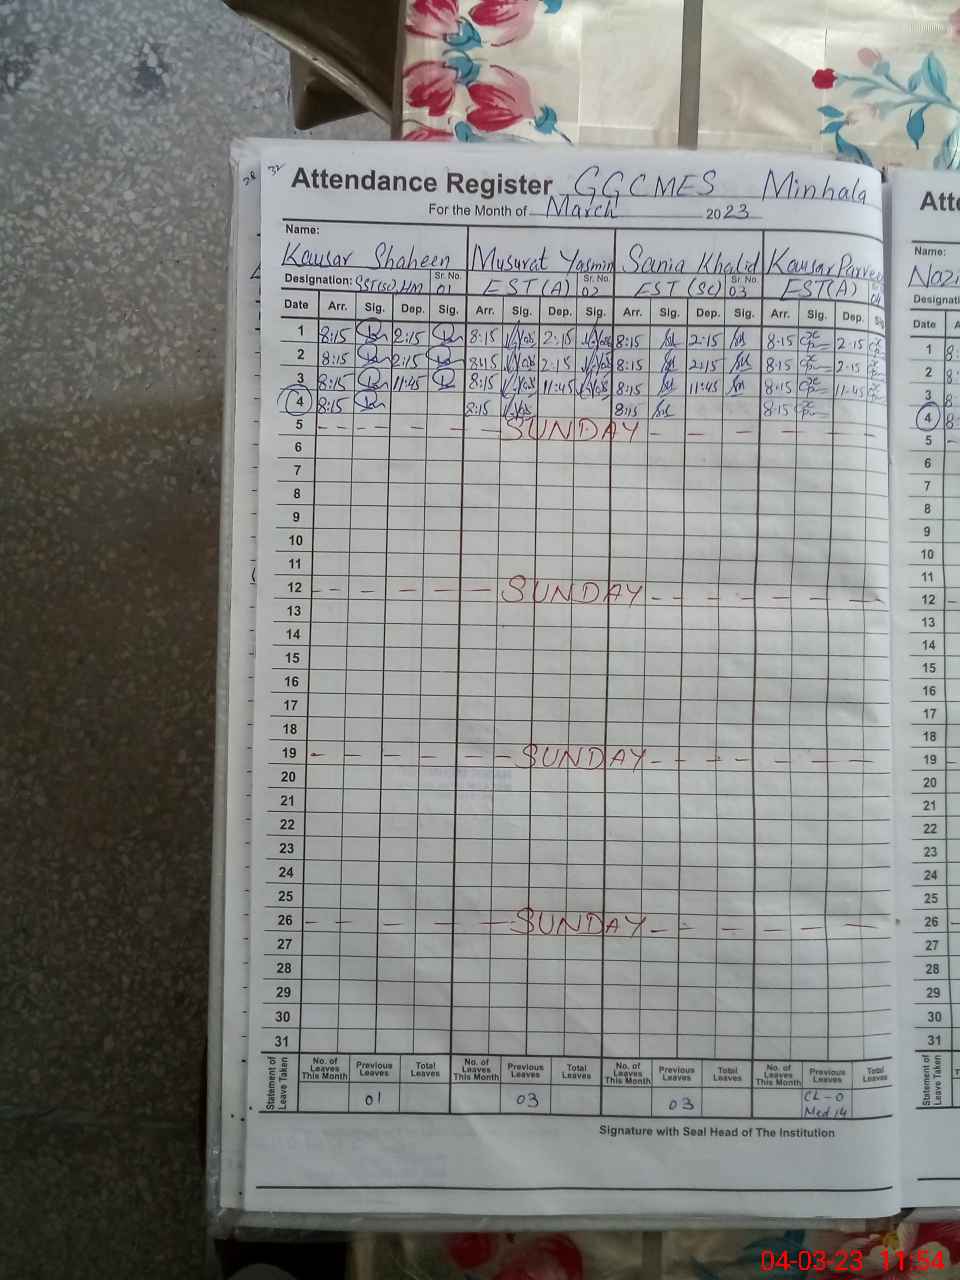 28 32
Attendance Register GGCMES Minhala
For the Month of March 2023
Name:
Kausar Shaheen Musurat Yasmin Sania Khalid Kausar Parveen
Designation: SST(SC), HM Sr. No. 01 EST(A) Sr. No. 02 EST(SC) Sr. No. 03 EST(A) 04
Date Arr. Sig. Dep. Sig. Arr. Sig. Dep. Sig. Arr. Sig. Dep. Sig. Arr. Sig. Dep. Sig
1 8:15 2:15 8:15 2:15 8:15 2:15 8:15 2:15
2 8:15 2:15 8:15 2:15 8:15 2:15 8:15 2:15
3 8:15 11:45 8:15 11:45 8:15 11:45 8:15 11:45
4 8:15 8:15 8:15 8:15
5 - - - - - - SUNDAY - - - - - -
6
7
8
9
10
11
12 - - - - - - SUNDAY - - - - - - -
13
14
15
16
17
18
19 - - - - - - SUNDAY - - - - - - -
20
21
22
23
24
25
26 - - - - - SUNDAY - - - - - -
27
28
29
30
31
Statement of Leave Taken
No. of Leaves This Month Previous Leaves Total Leaves No. of Leaves This Month Previous Leaves Total Leaves No. of Leaves This Month Previous Leaves Total Leaves No. of Leaves This Month Previous Leaves Total Leaves
01 03 03 CL-0
Med 14
Signature with Seal Head of The Institution
Atte
Name:
Nazi
Designati
Date A
1 8:
2 8:
3 8:
4 8:
5 -
6
7
8
9
10
11
12 -
13
14
15
16
17
18
19 -
20
21
22
23
24
25
26 -
27
28
29
30
31
Statement of Leave Taken
04-03-23 11:54